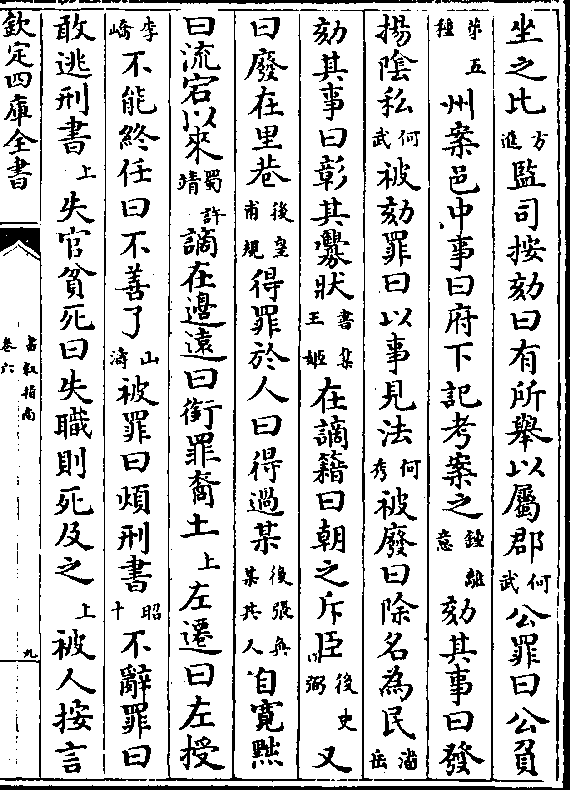 坐之比方進監司按劾曰有所舉以屬郡何武公罪曰公負
第五種州案邑中事曰府下記考案之鍾離意劾其事曰發
揚陰私何武被劾罪曰以事見法何秀被廢曰除名為民潘岳
劾其事曰彰其釁狀書集王姬在謫籍曰朝之斥臣後史弼又
曰廢在里巷後皇甫規得罪於人曰得過某後張奐某共人自寬黜
曰流宕以來蜀許靖謫在邊遠曰銜罪裔土上左遷曰左授
李嶠不能終任曰不善了山濤被罪曰煩刑書昭十不辭罪曰
敢逃刑書上失官貧死曰失職則死及之上被人按言
欽定四庫全書
書叙指南
卷六
九